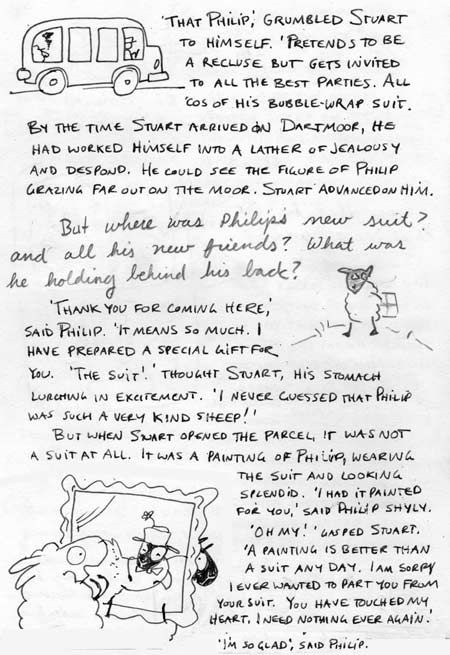 'THAT PHILIP,' GRUMBLED STUART
TO HIMSELF. 'PRETENDS TO BE
A RECLUSE BUT GETS INVITED
TO ALL THE BEST PARTIES. ALL
'COS OF HIS BUBBLE-WRAP SUIT.
BY THE TIME STUART ARRIVED ON DARTMOOR, HE
HAD WORKED HIMSELF INTO A LATHER OF JEALOUSY
AND DESPOND. HE COULD SEE THE FIGURE OF PHILIP
GRAZING FAR OUT ON THE MOOR. STUART ADVANCED ON HIM.
But where was Philip's new suit?
and all his new friends? What was
he holding behind his back?
'THANK YOU FOR COMING HERE,'
SAID PHILIP. 'IT MEANS SO MUCH. I
HAVE PREPARED A SPECIAL GIFT FOR
YOU. 'THE SUIT!' THOUGHT STUART, HIS STOMACH
LURCHING IN EXCITEMENT. 'I NEVER GUESSED THAT PHILIP
WAS SUCH A VERY KIND SHEEP!'
BUT WHEN STUART OPENED THE PARCEL, IT WAS NOT
A SUIT AT ALL. IT WAS A PAINTING OF PHILIP, WEARING
THE SUIT AND LOOKING
SPLENDID. 'I HAD IT PAINTED
FOR YOU,' SAID PHILIP SHYLY.
'OH MY!' GASPED STUART.
'A PAINTING IS BETTER THAN
A SUIT ANY DAY. I AM SORRY
I EVER WANTED TO PART YOU FROM
YOUR SUIT. YOU HAVE TOUCHED MY
HEART. I NEED NOTHING EVER AGAIN.'
'I'M SO GLAD', SAID PHILIP.